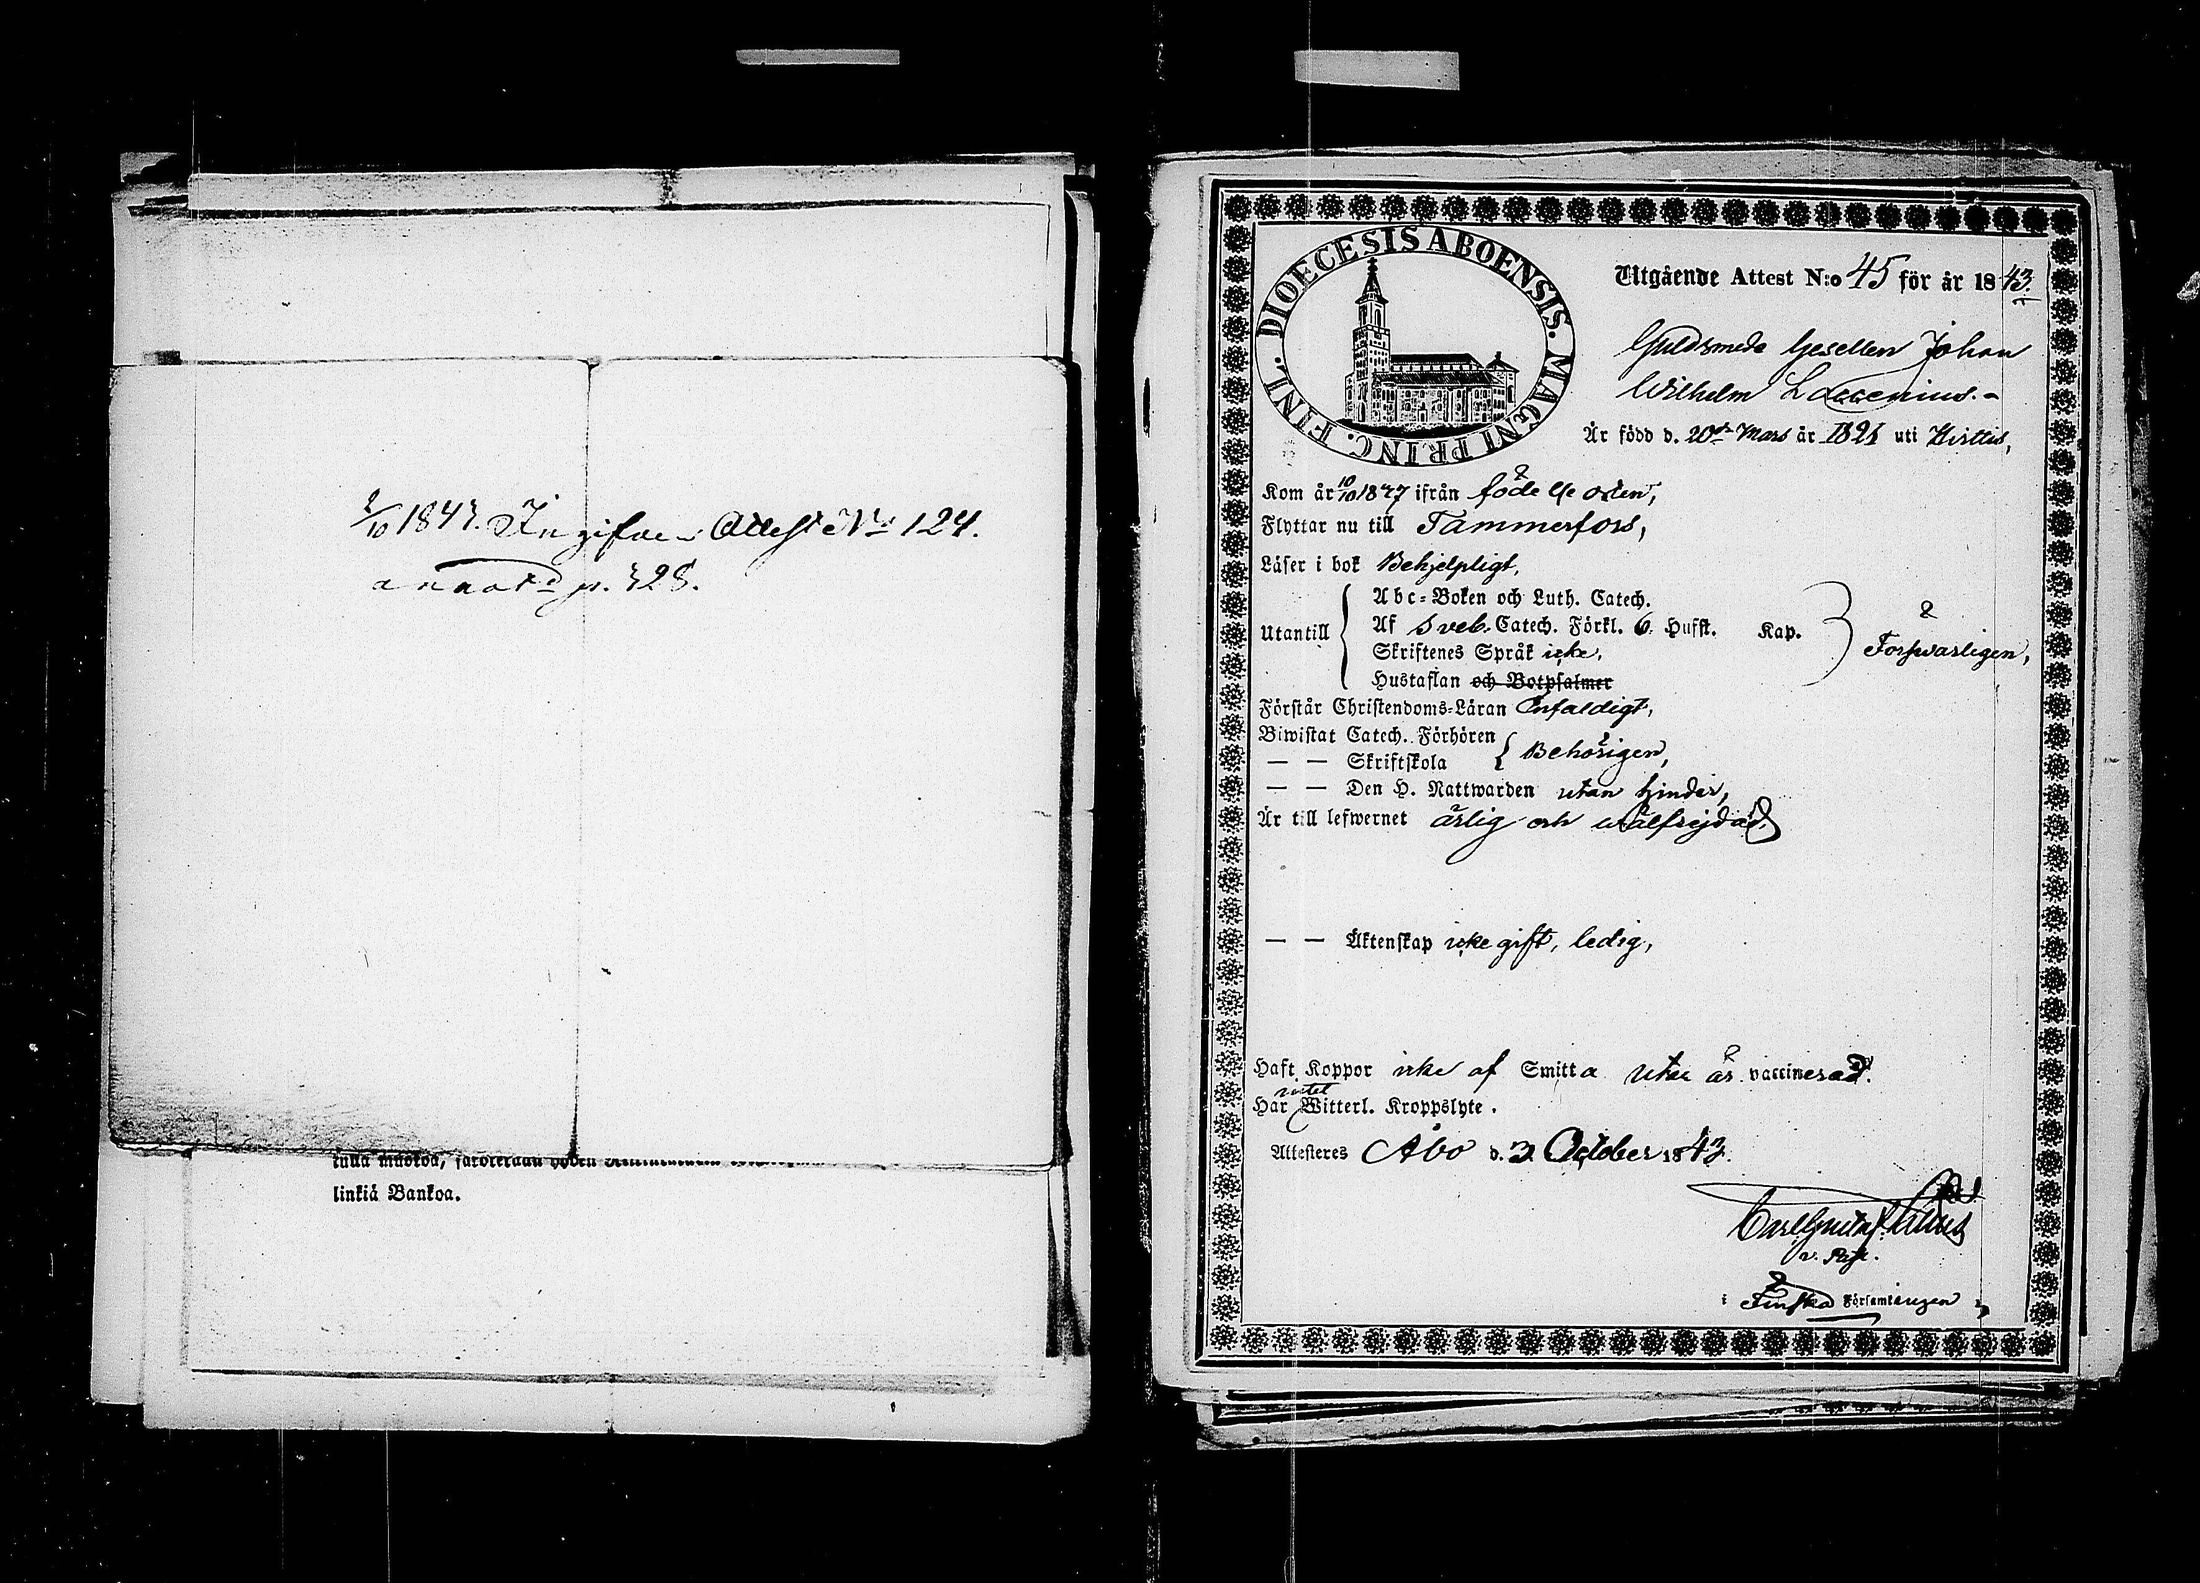 1843. Ingifven Attest No 124.
annot. p. 328.
linkiä Bankoa.
DIOECESIS ABOENSIS. MAGNI PRINC. FINL.
Utgående Attest N:o 45 för år 1843.
Guldsmeds Gesellen Johan
Wilhelm
Är född d. 20de Mars år 1821 uti
Kom år 10/10 1837 ifrån födelseorten,
Flyttar nu till Tammerfors,
Läser i bok Behjelpligt,
Utantill
Abc-Boken och Luth. Catech.
Af Sveb. Catech. Förkl. 6. Hufst. Kap.
Skriftenes Språk icke,
Hustaflan och Botpsalmer
Försvarligen,
Förstår Christendoms-Läran Enfaldigt,
Biwistat Catech. Förhören
— — Skriftskola
Behörigen,
— — Den H. Nattwarden utan hinder,
Är till lefwernet ärlig och wälfrejdad,
— — Äktenskap icke gift, ledig,
Haft Koppor icke af Smitta utan är vaccinerad.
intet
Har Witterl. Kroppslyte.
Attesteres Åbo d. 3 October 1843.
Carl Gustaf
v. Past.
i Finska Församlingen